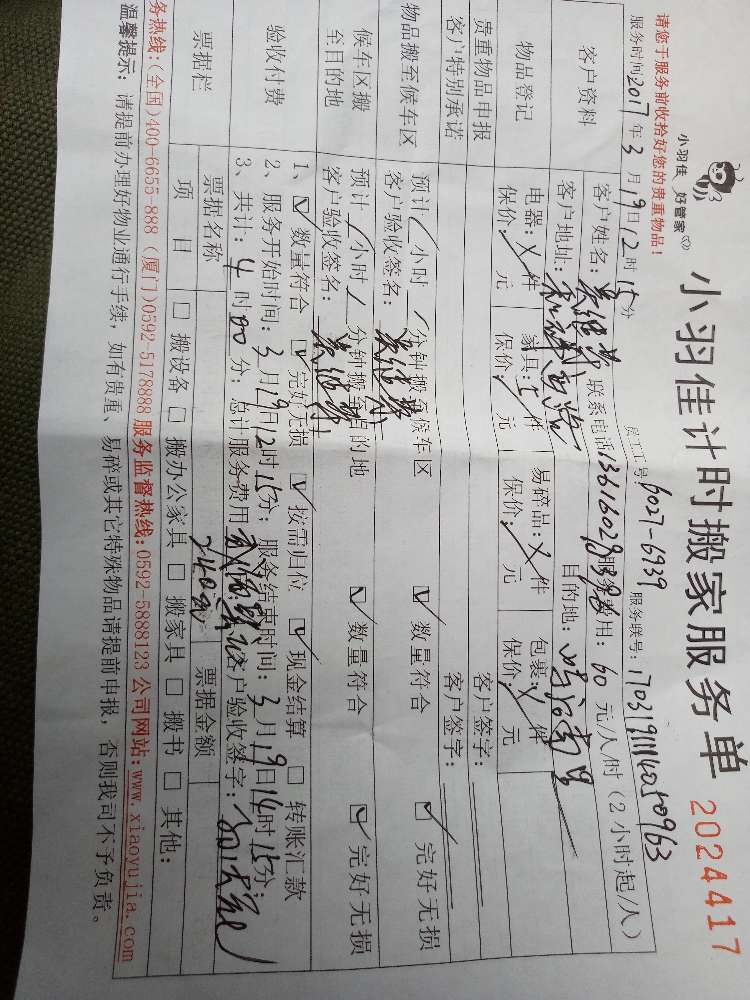 小羽佳 好管家
小羽佳计时搬家服务单 2024417
请您于服务前收拾好您的贵重物品！
员工工号 6027-6939 服务联号：
服务时间 2017年3月19日12时15分
客户资料
客户姓名： 联系电话 服务费用：60元/人/时（2小时起/人）
客户地址： 目的地：
物品登记
电器： 件 家具： 件 易碎品： 件 包裹： 件
保价： 元 保价： 元 保价： 元 保价： 元
贵重物品申报 客户签字：
客户特别承诺 客户签字：
物品搬至候车区
预计/小时/分钟搬至候车区 ☑ 数量符合 ☑ 完好无损
客户验收签名：
候车区搬至目的地
预计/小时/分钟搬至目的地 ☑ 数量符合 ☑ 完好无损
客户验收签名：
验收付费
1、☑ 数量符合 ☑ 完好无损 ☑ 按需归位 ☑ 现金结算 □ 转账汇款
2、服务开始时间：3月19日12时15分；服务结束时间：3月19日14时15分；
3、共计：4时00分；总计服务费用 240元 客户验收签字：
票据栏
票据名称 票据金额
项目 □ 搬设备 □ 搬办公家具 □ 搬家具 □ 搬书 □ 其他：
务热线：(全国)400-6655-888 (厦门)0592-5178888 服务监督热线：0592-5888123 公司网站：www.xiaoyujia.com
温馨提示：请提前办理好物业通行手续，如有贵重、易碎或其它特殊物品请提前申报，否则我司不予负责。